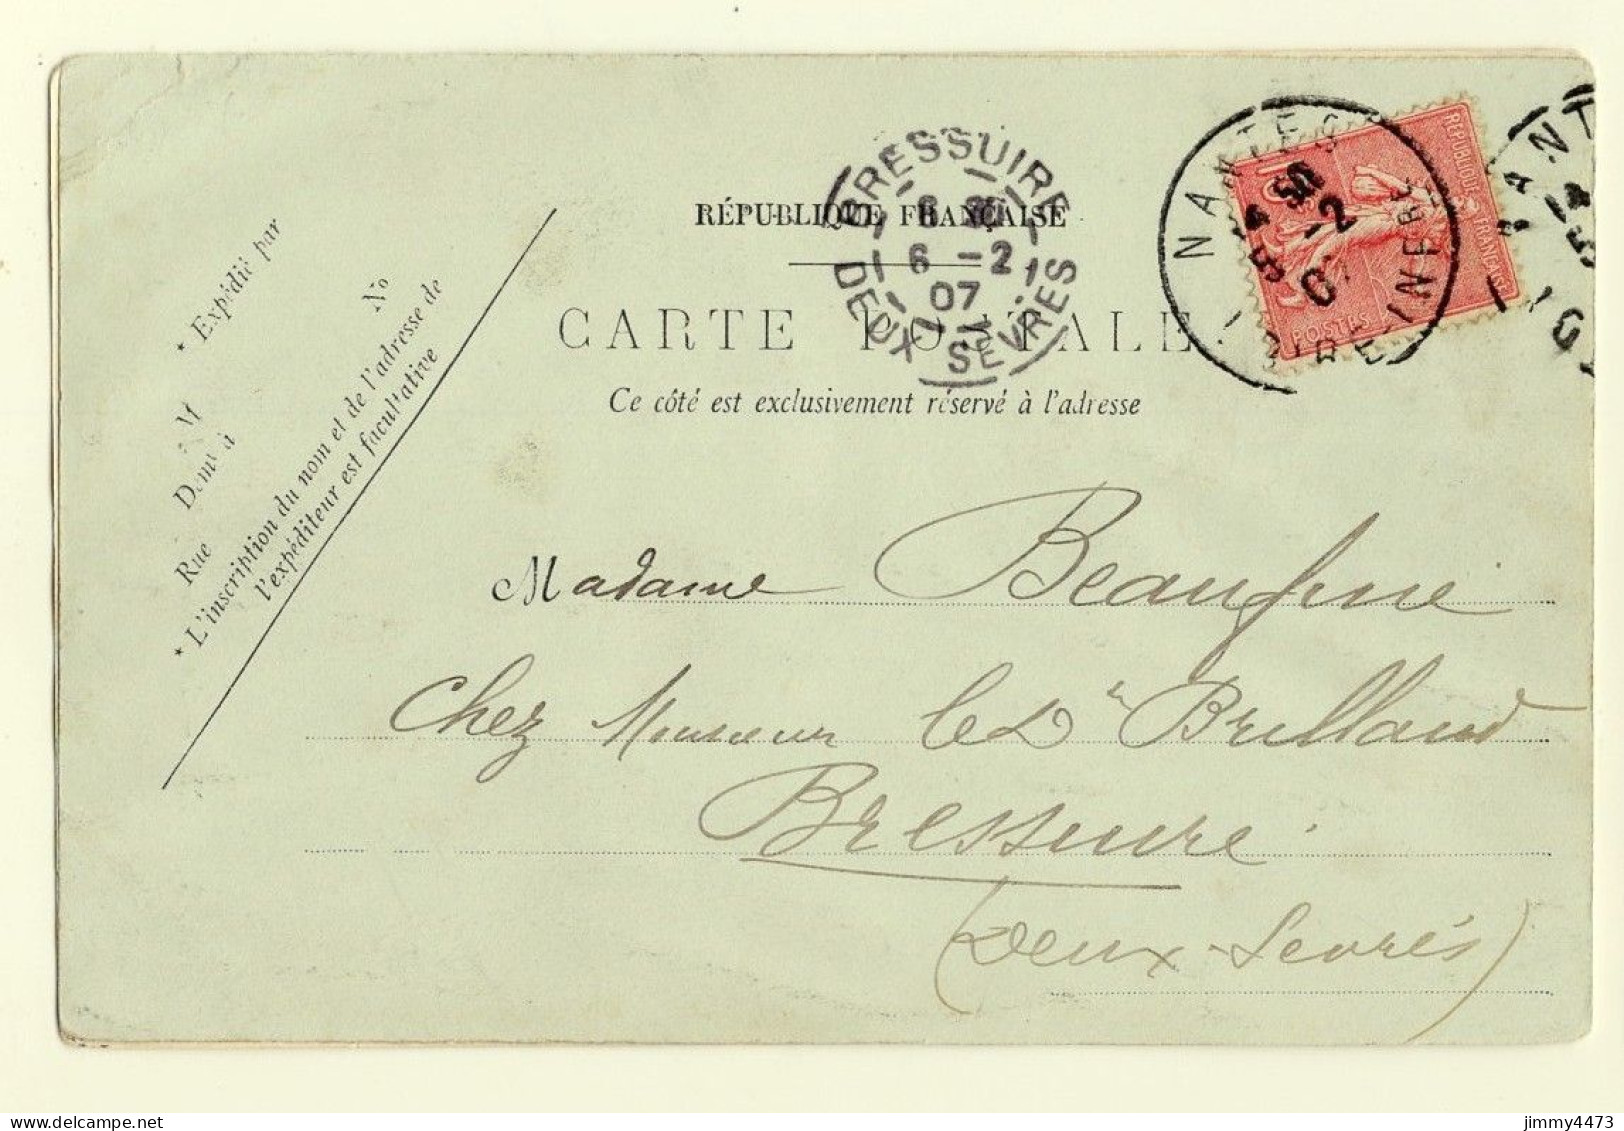 RÉPUBLIQUE FRANÇAISE
CARTE POSTALE
Ce côté est exclusivement réservé à l'adresse
BRESSUIRE
6 -2
07
DEUX SEVRES
NANTES
LOIRE-INFRE
-2
RÉPUBLIQUE FRANÇAISE
POSTES
NANT
* Expédié par
No
M
Dem^t à
Rue
* L'inscription du nom et de l'adresse de
l'expéditeur est facultative
Madame
Chez Monsieur le Dr Brillaud
Bressuire
(Deux-Sèvres)
jimmy4473